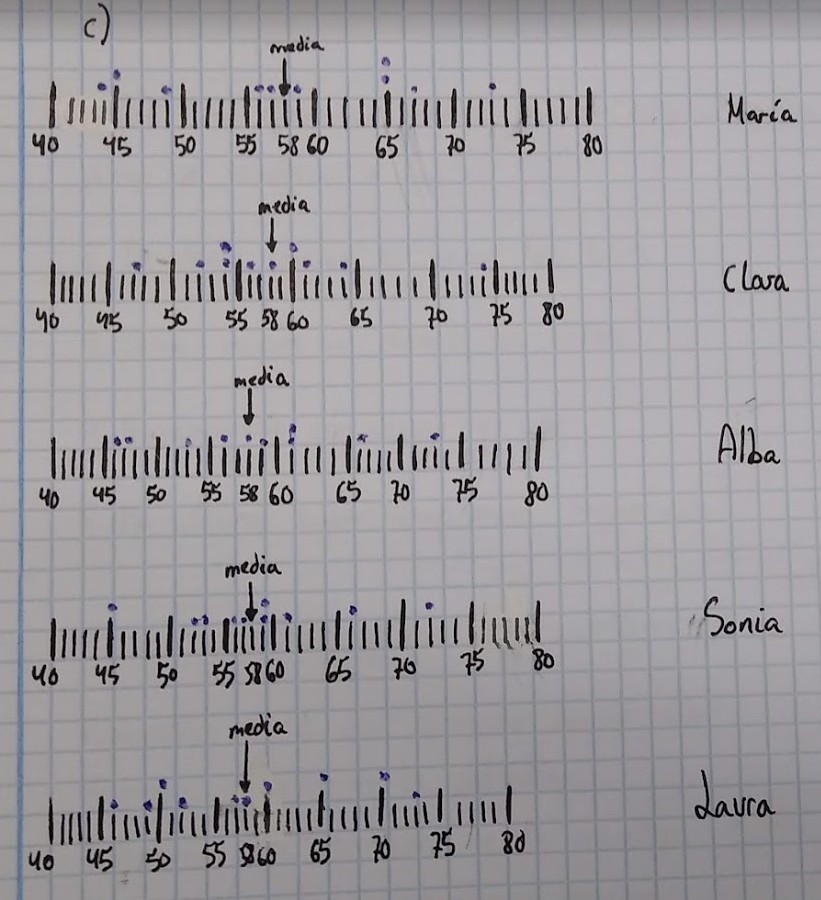 c)
media
María
40 45 50 55 58 60 65 70 75 80
media
Clara
40 45 50 55 58 60 65 70 75 80
media
Alba
40 45 50 55 58 60 65 70 75 80
media
Sonia
40 45 50 55 58 60 65 70 75 80
media
Laura
40 45 50 55 58 60 65 70 75 80